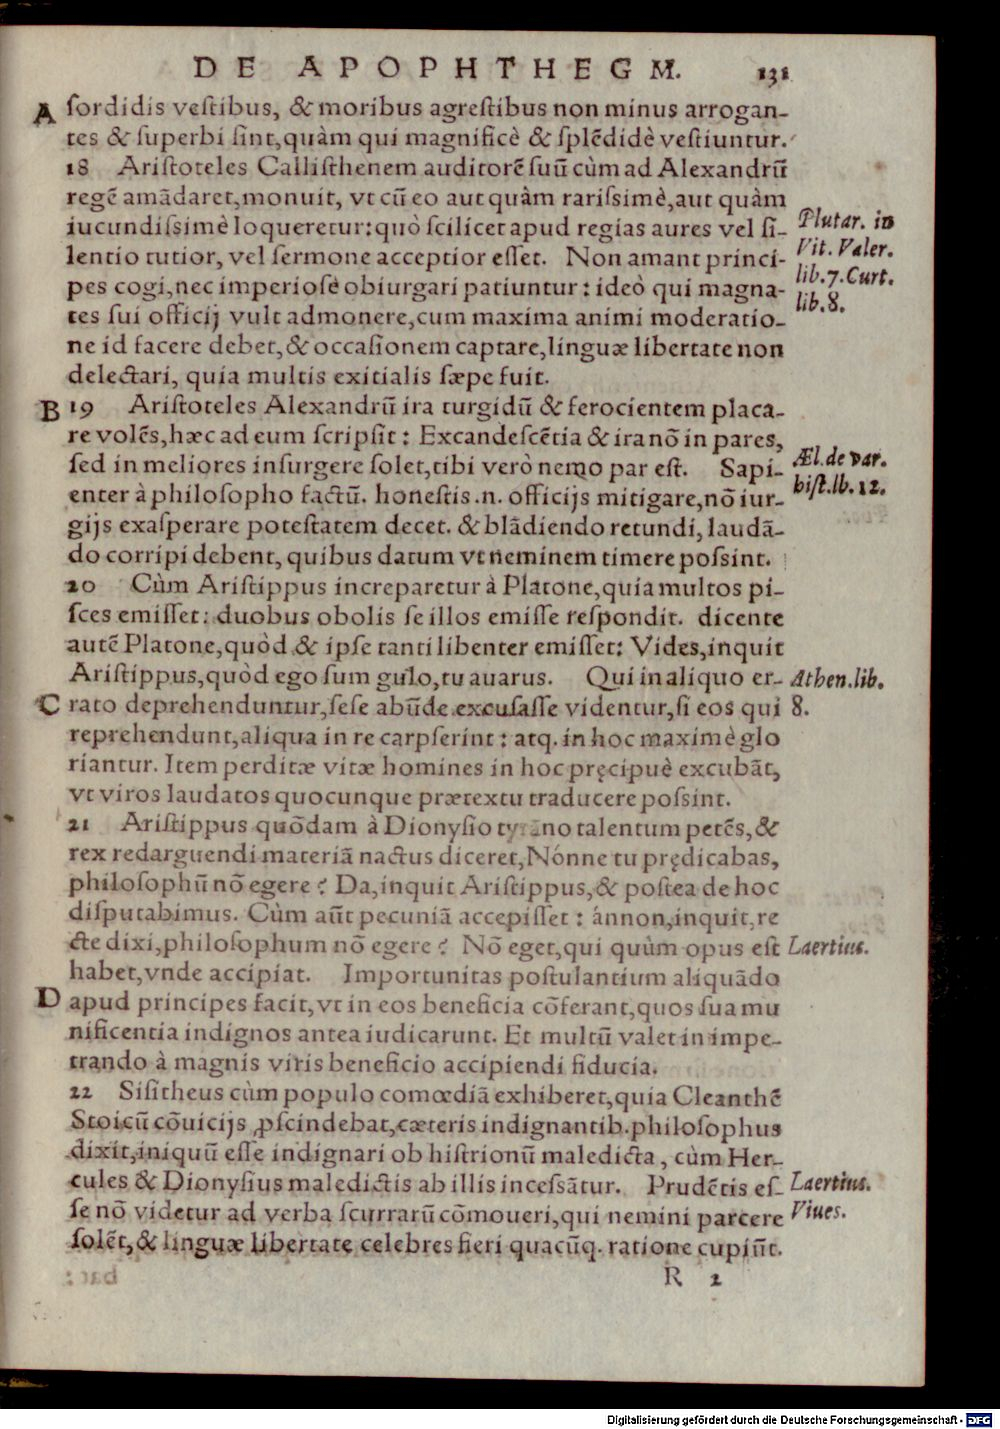 DE APOPHTHEGM. 131
A sordidis vestibus, & moribus agrestibus non minus arrogan-
tes & superbi sint, quàm qui magnificè & splẽdidè vestiuntur.
18 Aristoteles Callisthenem auditorẽ suũ cùm ad Alexandrũ
regẽ amãdaret, monuit, vt cũ eo aut quàm rarissimè, aut quàm
iucundissimè loqueretur: quò scilicet apud regias aures vel si-
lentio tutior, vel sermone acceptior esset. Non amant princi-
pes cogi, nec imperiosè obiurgari patiuntur: ideò qui magna-
tes sui officij vult admonere, cum maxima animi moderatio-
ne id facere debet, & occasionem captare, linguæ libertate non
delectari, quia multis exitialis sæpe fuit.
Plutar. in
Vit. Valer.
lib.7. Curt.
lib.8.
B 19 Aristoteles Alexandrũ ira turgidũ & ferocientem placa-
re volẽs, hæc ad eum scripsit: Excandescẽtia & ira nõ in pares,
sed in meliores insurgere solet, tibi verò nemo par est. Sapi-
enter à philosopho factũ. honestis .n. officijs mitigare, nõ iur-
gijs exasperare potestatem decet. & blãdiendo retundi, laudã-
do corripi debent, quibus datum vt neminem timere possint.
Æl. de var.
hist. lb. 12.
20 Cùm Aristippus increparetur à Platone, quia multos pi-
sces emisset: duobus obolis se illos emisse respondit. dicente
autẽ Platone, quòd & ipse tanti libenter emisset: Vides, inquit
Aristippus, quòd ego sum gulo, tu auarus. Qui in aliquo er-
C rato deprehenduntur, sese abũde excusasse videntur, si eos qui
reprehendunt, aliqua in re carpserint: atq. in hoc maximè glo
riantur. Item perditæ vitæ homines in hoc pręcipuè excubãt,
vt viros laudatos quocunque prætextu traducere possint.
Athen. lib.
8.
21 Aristippus quõdam à Dionysio tyrãno talentum petẽs, &
rex redarguendi materiã nactus diceret, Nónne tu prędicabas,
philosophũ nõ egere? Da, inquit Aristippus, & postea de hoc
disputabimus. Cùm aũt pecuniã accepisset: ánnon, inquit, re
cte dixi, philosophum nõ egere? Nõ eget, qui quùm opus est
habet, vnde accipiat. Importunitas postulantium aliquãdo
D apud principes facit, vt in eos beneficia cõferant, quos sua mu
nificentia indignos antea iudicarunt. Et multũ valet in impe-
trando à magnis viris beneficio accipiendi fiducia.
Laertius.
22 Sisitheus cùm populo comœdiã exhiberet, quia Cleanthẽ
Stoicũ cõuicijs ꝓscindebat, cæteris indignantib. philosophus
dixit, iniquũ esse indignari ob histrionũ maledicta, cùm Her-
cules & Dionysius maledictis ab illis incessãtur. Prudẽtis es-
se nõ videtur ad verba scurrarũ cõmoueri, qui nemini parcere
solẽt, & linguæ libertate celebres fieri quacũq. ratione cupiũt.
Laertius.
Viues.
R 2
Digitalisierung gefördert durch die Deutsche Forschungsgemeinschaft - DFG